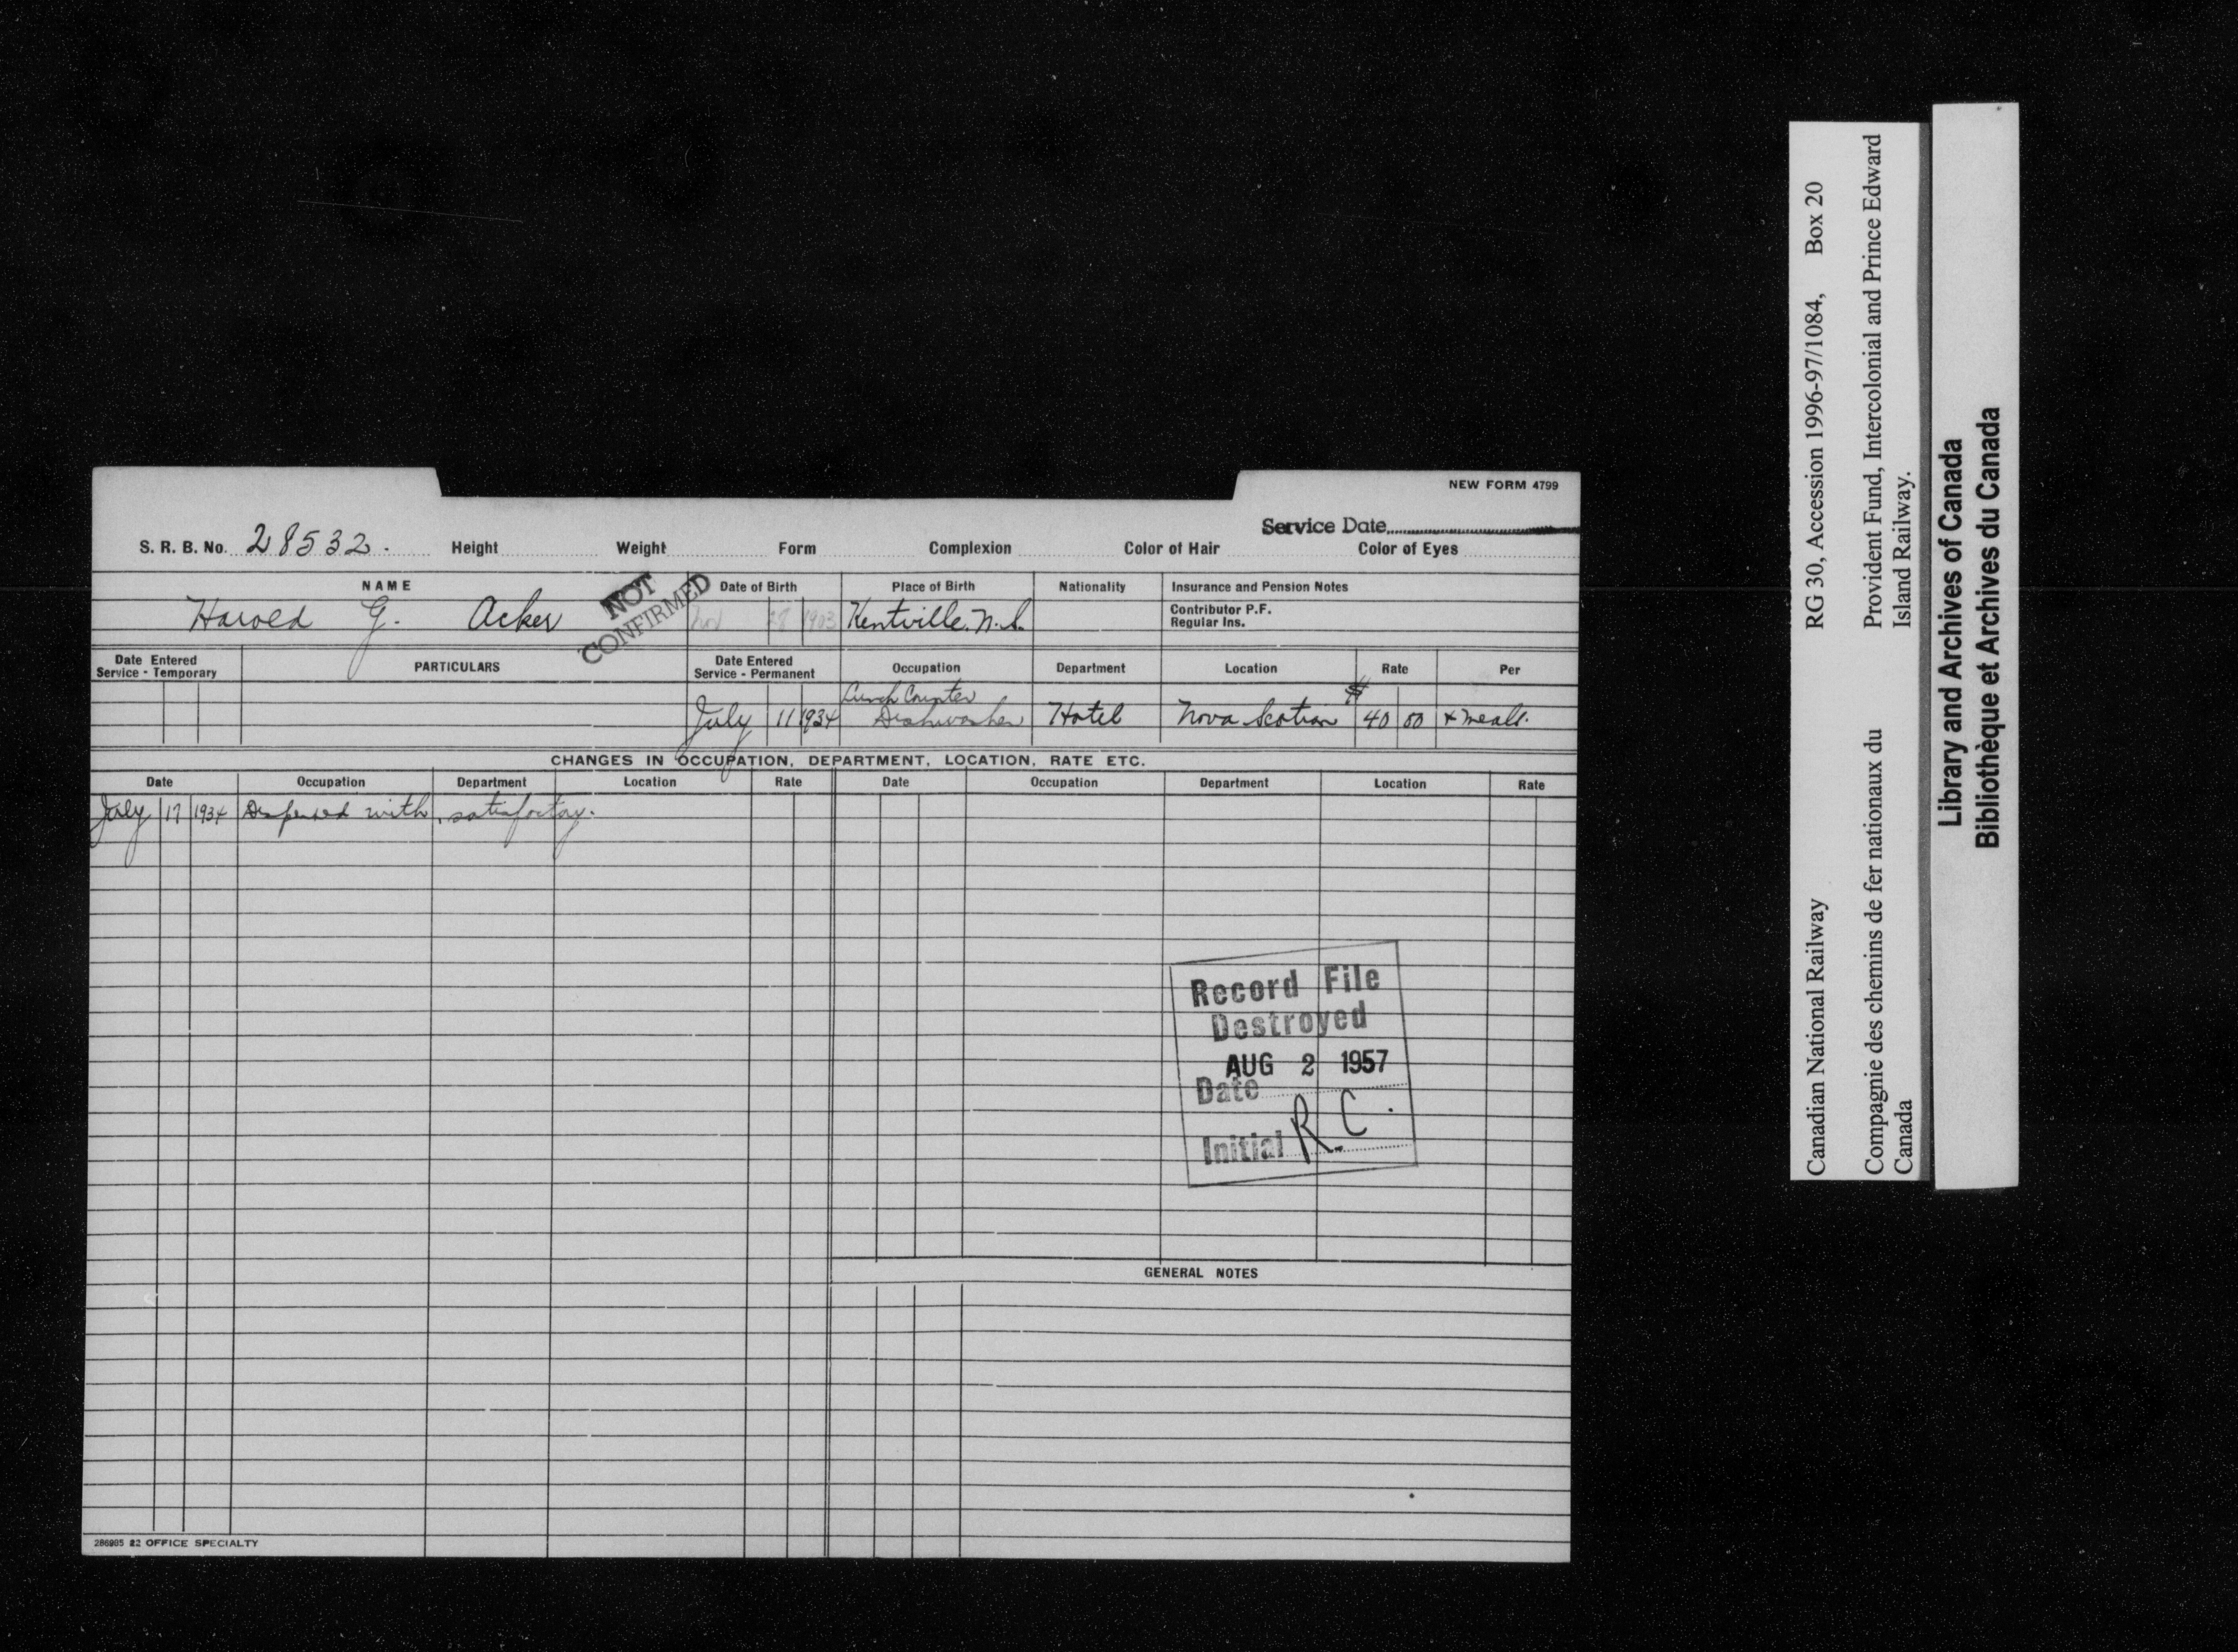 NEW FORM 4799
Service Date
S. R. B. No. 28532. Height Weight Form Complexion Color of Hair Color of Eyes
NAME Date of Birth Place of Birth Nationality Insurance and Pension Notes
Harold G. Acker NOT CONFIRMED Nov 28 1903 Kentville. N.S. Contributor P.F.
Regular Ins.
Date Entered Service - Temporary PARTICULARS Date Entered Service - Permanent Occupation Department Location Rate Per
Lunch Counter $
July 11 1934 Dishwasher Hotel Nova Scotian 40 00 + meals.
CHANGES IN OCCUPATION, DEPARTMENT, LOCATION, RATE ETC.
Date Occupation Department Location Rate Date Occupation Department Location Rate
July 17 1934 Dispensed with, satisfactory.
Record File
Destroyed
AUG 2 1957
Date
Initial R.C.
GENERAL NOTES
286905 22 OFFICE SPECIALTY
Canadian National Railway RG 30, Accession 1996-97/1084, Box 20
Compagnie des chemins de fer nationaux du Provident Fund, Intercolonial and Prince Edward
Canada Island Railway.
Library and Archives of Canada
Bibliothèque et Archives du Canada